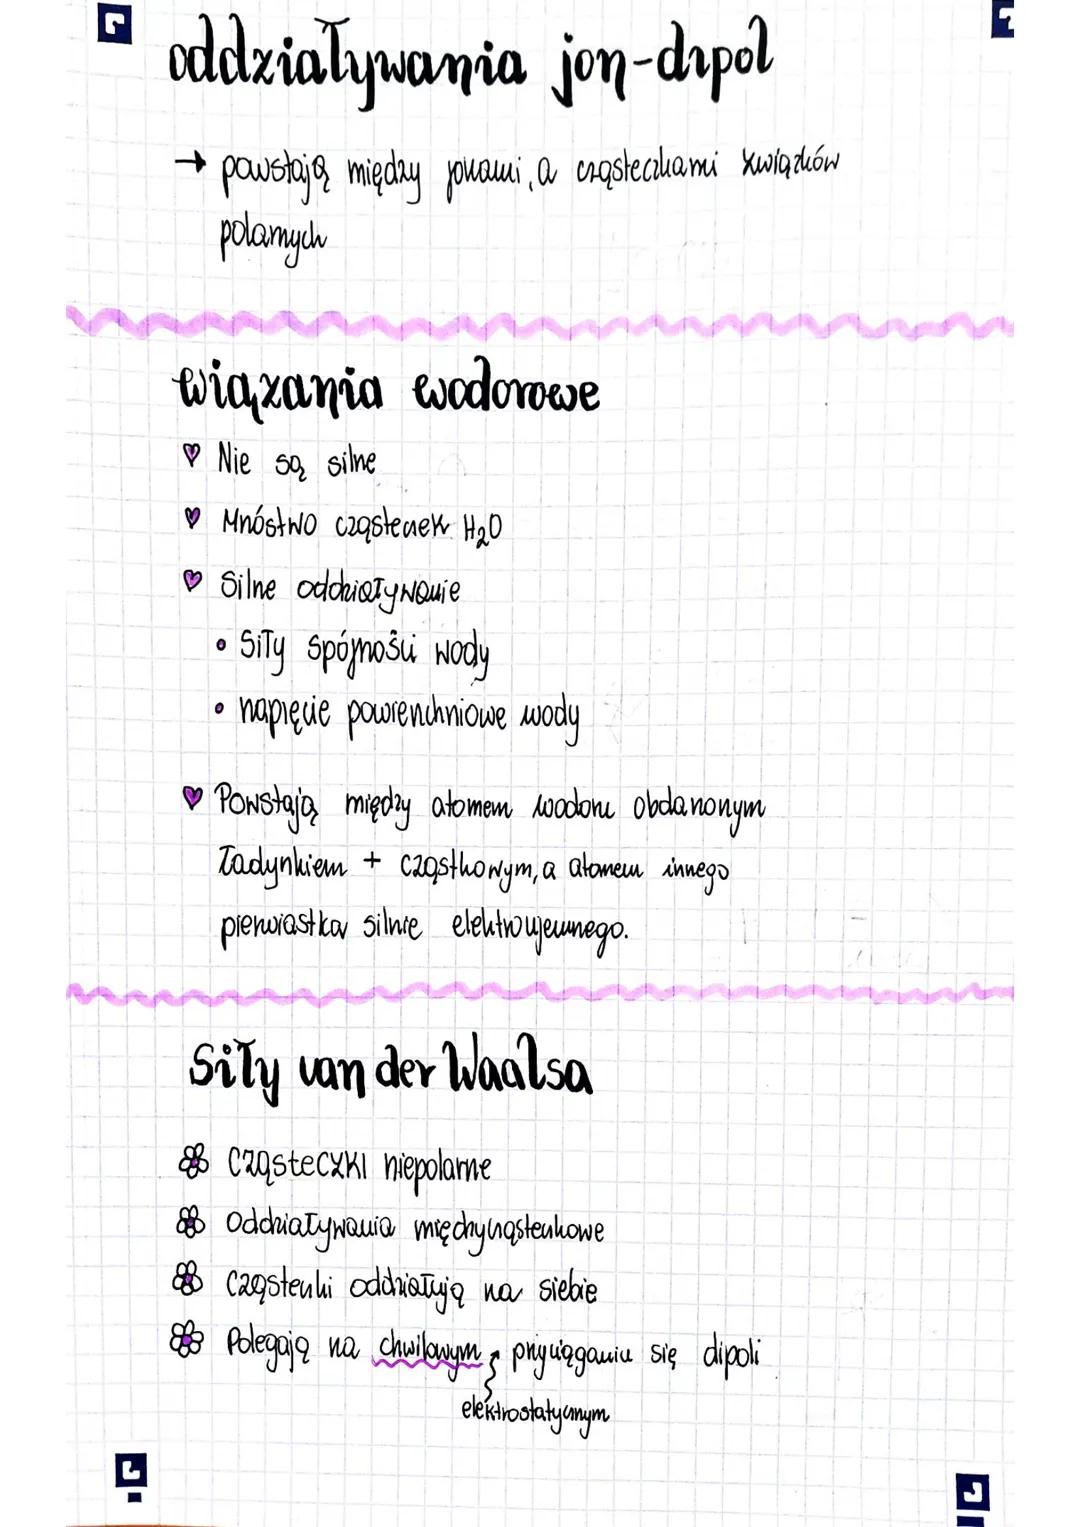 oddziaływania jon-dipol
→ powstają między jonami, a cząsteczkami związków
polarnych
wiązania wodorowe
Nie są silne
Mnóstwo cząsteczek H₂O
Silne oddziaływanie
• Siły spójności wody
• napięcie powierzchniowe wody
Powstają między atomem wodoru obdarzonym
ładunkiem + cząstkowym, a atomem innego
pierwiastka silnie elektroujemnego.
Siły van der Waalsa
CZąsteCZKI niepolarne
Oddziaływania międzycząsteczkowe
Cząsteczki oddziałują na siebie
Polegają na chwilowym przyciąganiu się dipoli
elektrostatycznym